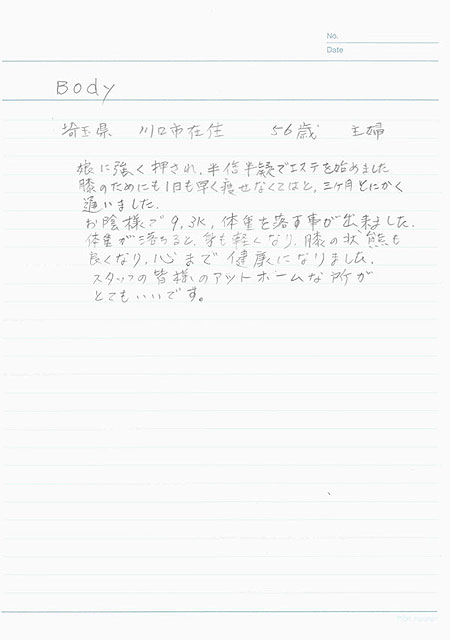 No.
Date
Body
埼玉県 川口市在住 56歳 主婦
娘に強く押され、半信半疑でエステを始めました
膝のためにも1日も早く痩せなくてはと、三ヶ月とにかく
通いました。
お陰様で9.3K、体重を落す事が出来ました。
体重が落ちると、身も軽くなり、膝の状態も
良くなり、心まで健康になりました。
スタッフの皆様のアットホームな所が
とてもいいです。